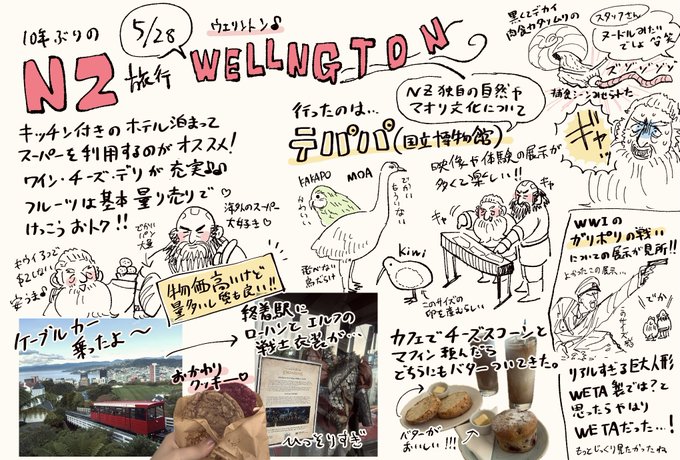 10年ぶりの
NZ旅行
5/28
ウェリントン♪
WELLNGTON
キッチン付きのホテル泊まって
スーパーを利用するのがオススメ!
ワイン・チーズ・デリが充実♪♪
フルーツは基本量り売りで
けっこうおトク!!
海外のスーパー
大好き♡
でかい
パン
大量
キウイ3つで
安っ!
物価高いけど
量多いし質も良い!!
NZ独自の自然や
マオリ文化について
行ったのは…
テパパ(国立博物館)
KAKAPO
かわいい
MOA
でかい
もういない
飛べない
鳥だらけ
kiwi
このサイズの
卵を産むらしい
映像や体験の展示が
多くて楽しい!!
ギャ
黒くてデカイ
肉食カタツムリの
スタッフさん
ヌードルみたい
でしょ 笑
ズゾゾゾッ
捕食シーンみせられた
ギャッ
WWIの
ガリポリの戦い
についての展示が見所!!
よかったこの展示…
でか
このサイズ
リアルすぎる巨大人形
WETA製では?と
思ったらやはり
WETAだった…!
もっとじっくり見たかったね
ケーブルカー
乗ったよ〜
終着駅に
ローハンとエルフの
戦士衣装が…
ひっそりすぎ
おかわり
クッキー♡
カフェでチーズスコーンと
マフィン頼んだら
どちらにもバターついてきた。
バターが
おいしい!!!